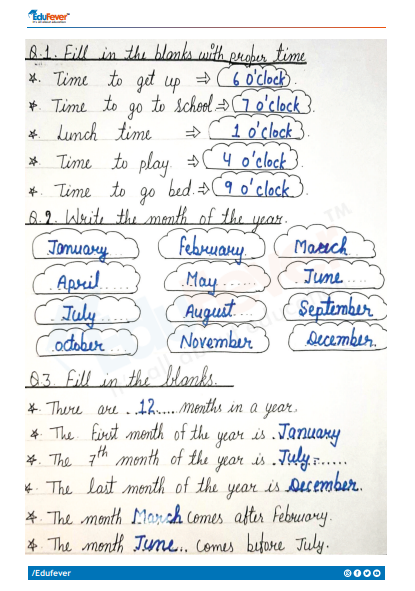 EduFever
Q.1. Fill in the blanks with proper time
Time to get up ⇒ 6 o'clock.
Time to go to School ⇒ 7 o'clock.
Lunch time ⇒ 1 o'clock.
Time to play. ⇒ 4 o'clock.
Time to go bed. ⇒ 9 o'clock.
Q.2. Write the month of the year.
January.... February.... March...
.April...... .May....... .June.....
.July...... August.... September
october.... November December.
Q.3. Fill in the blanks.
There are ..12..... months in a year.
The first month of the year is .January
The 7th month of the year is .July.......
The last month of the year is December.
The month March comes after February.
The month June.. comes before July.
/Edufever